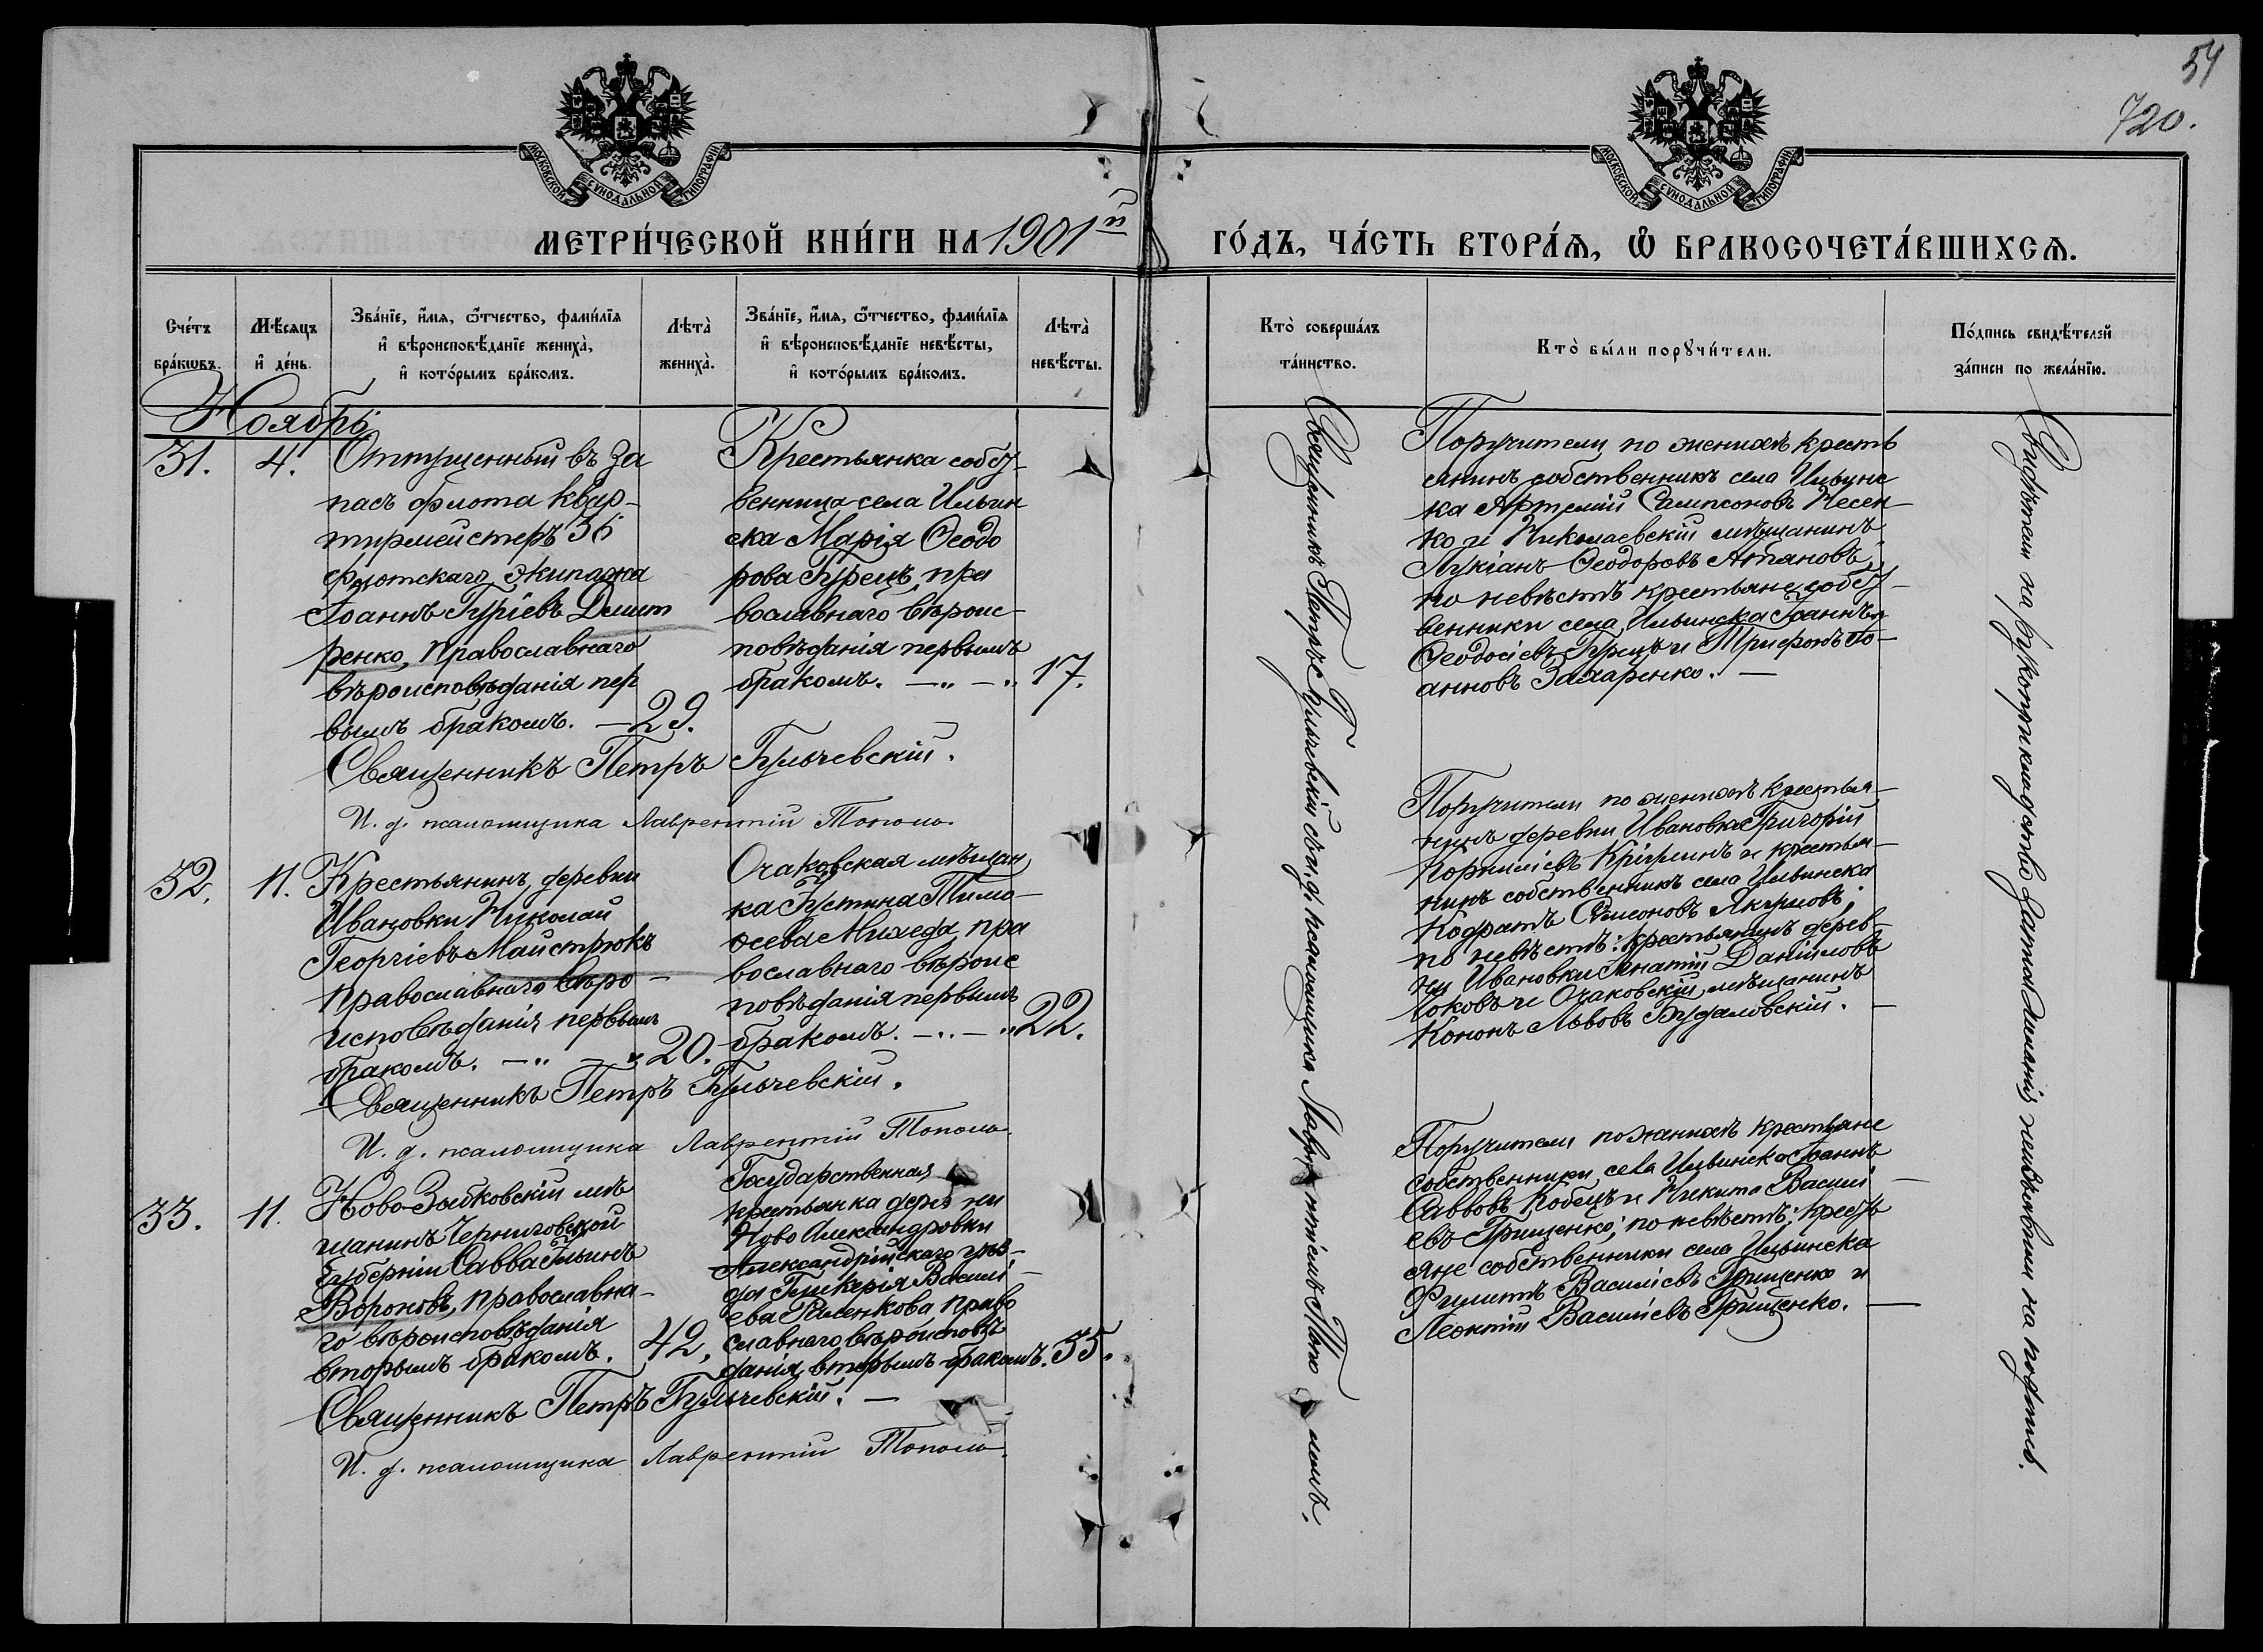 54
720.
МОСКОВСКОЙ СѴНОДАЛЬНОЙ ТИПОГРАФІИ
МОСКОВСКОЙ СѴНОДАЛЬНОЙ ТИПОГРАФІИ
МЕТРИ́ЧЕСКОЙ КНИ́ГИ НА 1901й ГО́ДЪ, ЧА́СТЬ ВТОРА́Я, Ѿ БРАКОСОЧЕТА́ВШИХСЯ.
Сче́тъ бра́кѡвъ.
Мѣ́сяцъ и҆ де́нь.
Зва́нїе, и҆́мя, ѻ҆́тчество, фами́лїя и҆ вѣроисповѣ́данїе жениха̀, и҆ кото́рымъ бра́комъ.
Лѣта̀ жениха̀.
Зва́нїе, и҆́мя, ѻ҆́тчество, фами́лїя и҆ вѣроисповѣ́данїе невѣ́сты, и҆ кото́рымъ бра́комъ.
Лѣта̀ невѣ́сты.
Кто̀ соверша́лъ та́инство.
Кто̀ бы́ли порꙋчи́тели.
По́дпись свидѣ́телей за́писи по жела́нїю.
Ноябрь
31. 4.
Отпущенный въ за
пасъ флота квар-
тирмейстеръ 36
флотскаго экипажа
Іоаннъ Гуріевъ Дмит
ренко, православнаго
вѣроисповѣданія пер
вымъ бракомъ. — 29.
Крестьянка собст-
венница села Ильин
ска Марія Ѳеодо
рова Грець, пра
вославнаго вѣроис-
повѣданія первымъ
бракомъ. — „ — „ 17.
Поручители по женихѣ кресть
янинъ собственникъ села Ильинс
ка Артемій Сампсоновъ Несен-
ко и Николаевскій мѣщанинъ
Лукіанъ Ѳеодоровъ Атановъ,
по невѣстѣ крестьяне собст-
венники села Ильинска Іоаннъ
Ѳеодосіевъ Грець и Трифонъ Іо-
анновъ Захаренко. —
Священникъ Петръ Бульчевскій.
И. д. псаломщика Лаврентій Тополь.
32. 11.
Крестьянинъ деревни
Ивановки Николай
Георгіевъ Майстрюкъ
православнаго вѣро-
исповѣданія первымъ
бракомъ. — „ — „ 20.
Очаковская мѣщан
ка Устина Тимо-
ѳеева Михеда, пра
вославнаго вѣроис
повѣданія первымъ
бракомъ. — „ — „ 22.
Поручители по женихѣ крестья-
нинъ деревни Ивановки Григорій
Корниліевъ и крестья-
нинъ собственникъ села Ильинска
Кодратъ Симеоновъ Якушовъ;
по невѣстѣ: крестьянинъ дерев-
ни Ивановки Игнатій Даніиловъ
и Очаковскій мѣщанинъ
Кононъ Львовъ Будаловскій. —
Священникъ Петръ Бульчевскій.
И. д. псаломщика Лаврентій Тополь.
33. 11.
Ново-Зыбковскій мѣ
щанинъ Черниговской
губерніи Савва Ильинъ
Вороновъ, православна-
го вѣроисповѣданія
вторымъ бракомъ. 42,
Государственная
крестьянка дерев ни
Ново Александровки
Александрійскаго уѣз-
да Гликерія Василі-
ева право
славнаго вѣроисповѣ
данія, вторымъ бракомъ. 35.
Поручители по женихѣ крестьяне
собственники села Ильинска Іоаннъ
Саввовъ Кобецъ и Никита Василі-
евъ Грищенко; по невѣстѣ: кресть
яне собственники села Ильинска
Филиппъ Василіевъ Грищенко и
Леонтій Василіевъ Грищенко. —
Священникъ Петръ Бульчевскій. —
И. д. псаломщика Лаврентій Тополь.
Священникъ Петръ Бульчевскій съ и. д. псаломщика Лаврентіемъ Тополемъ.